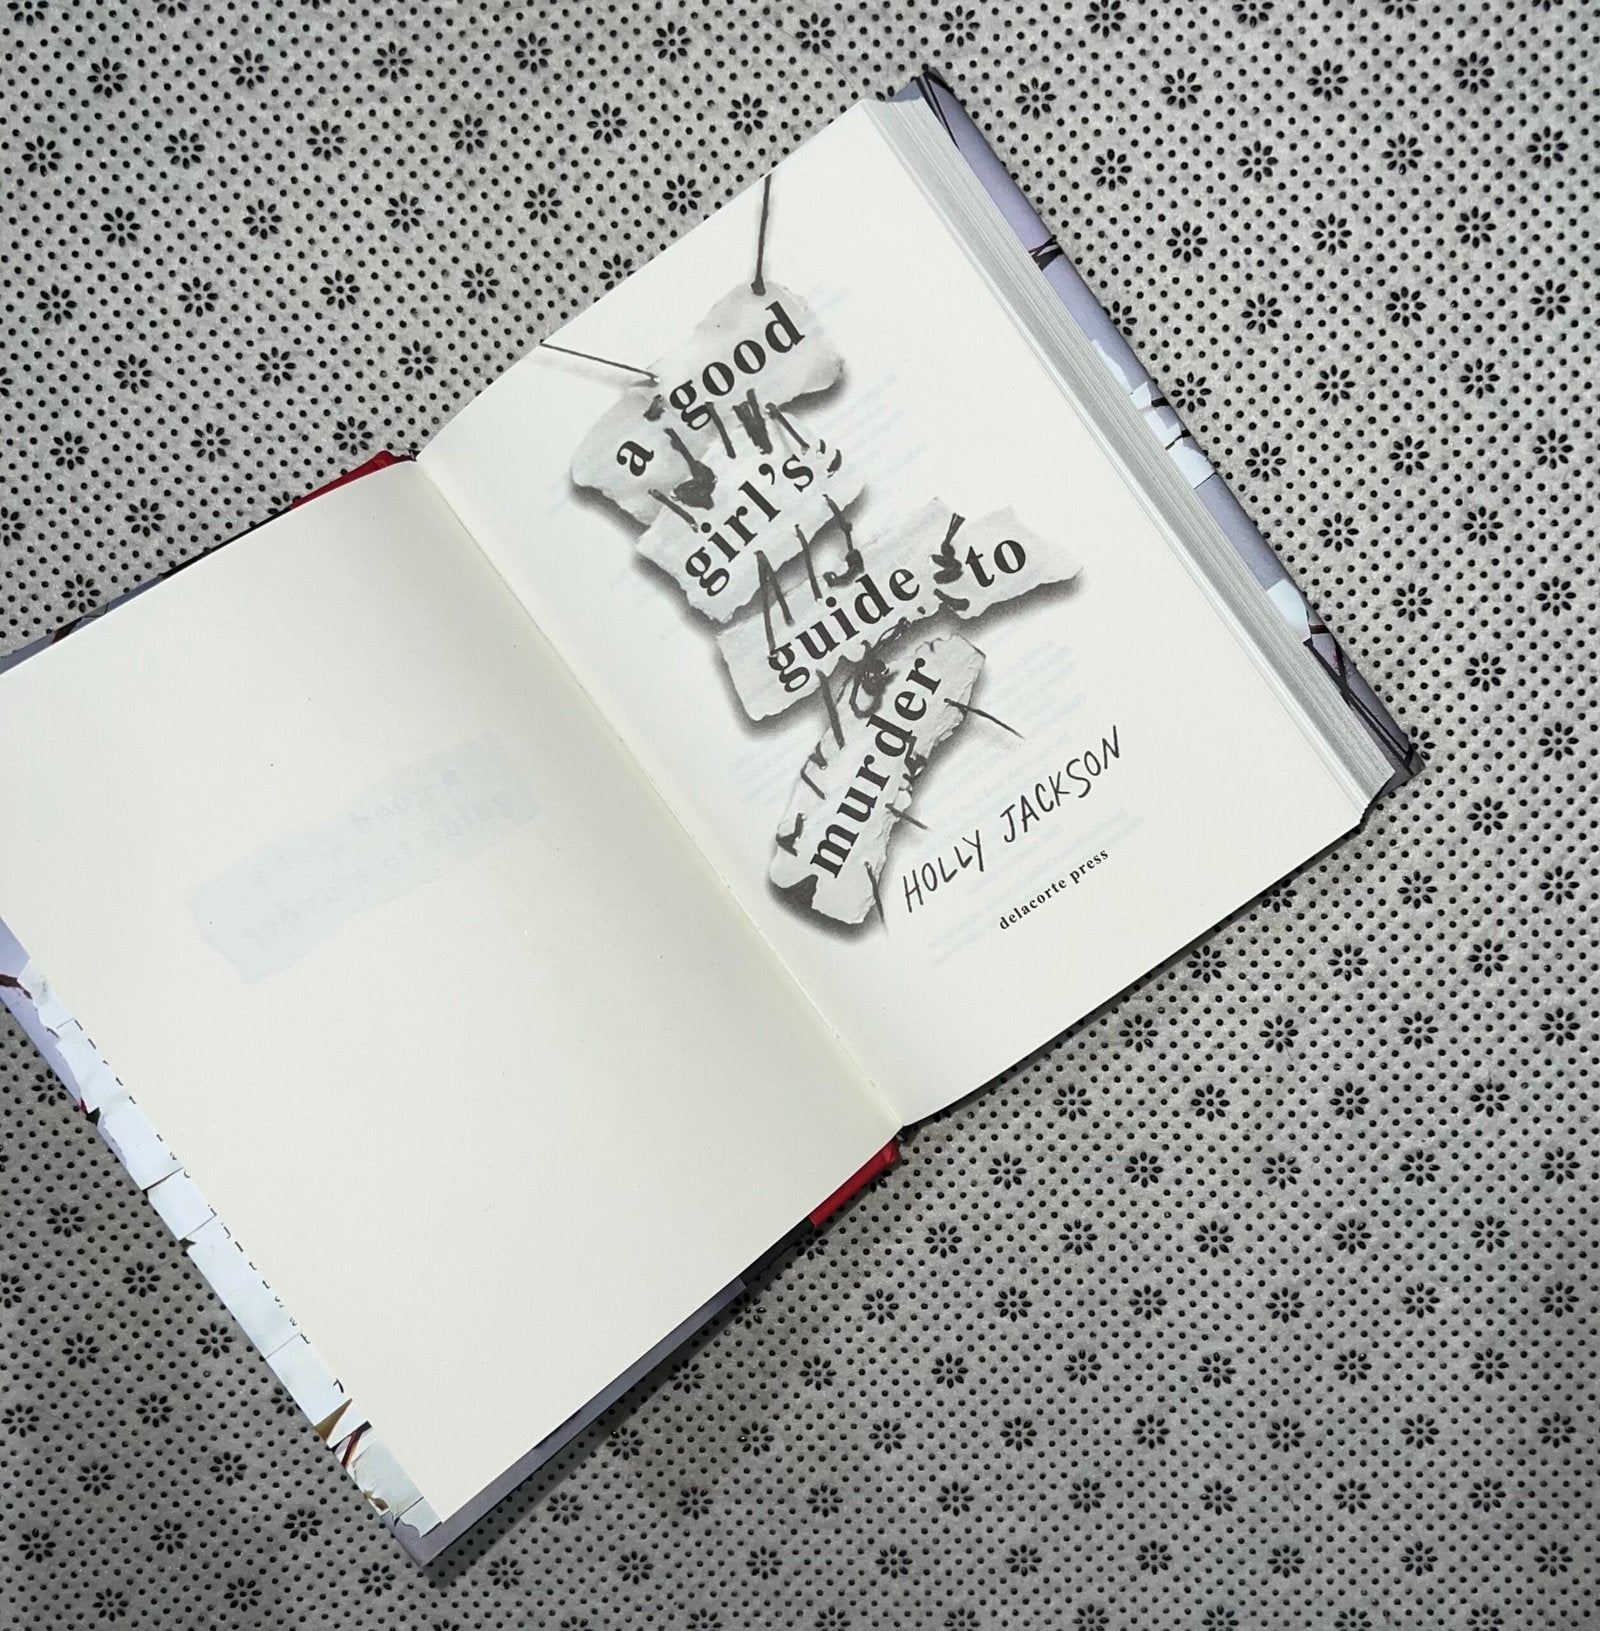 a good
girl's
guide to
murder
HOLLY JACKSON
delacorte press